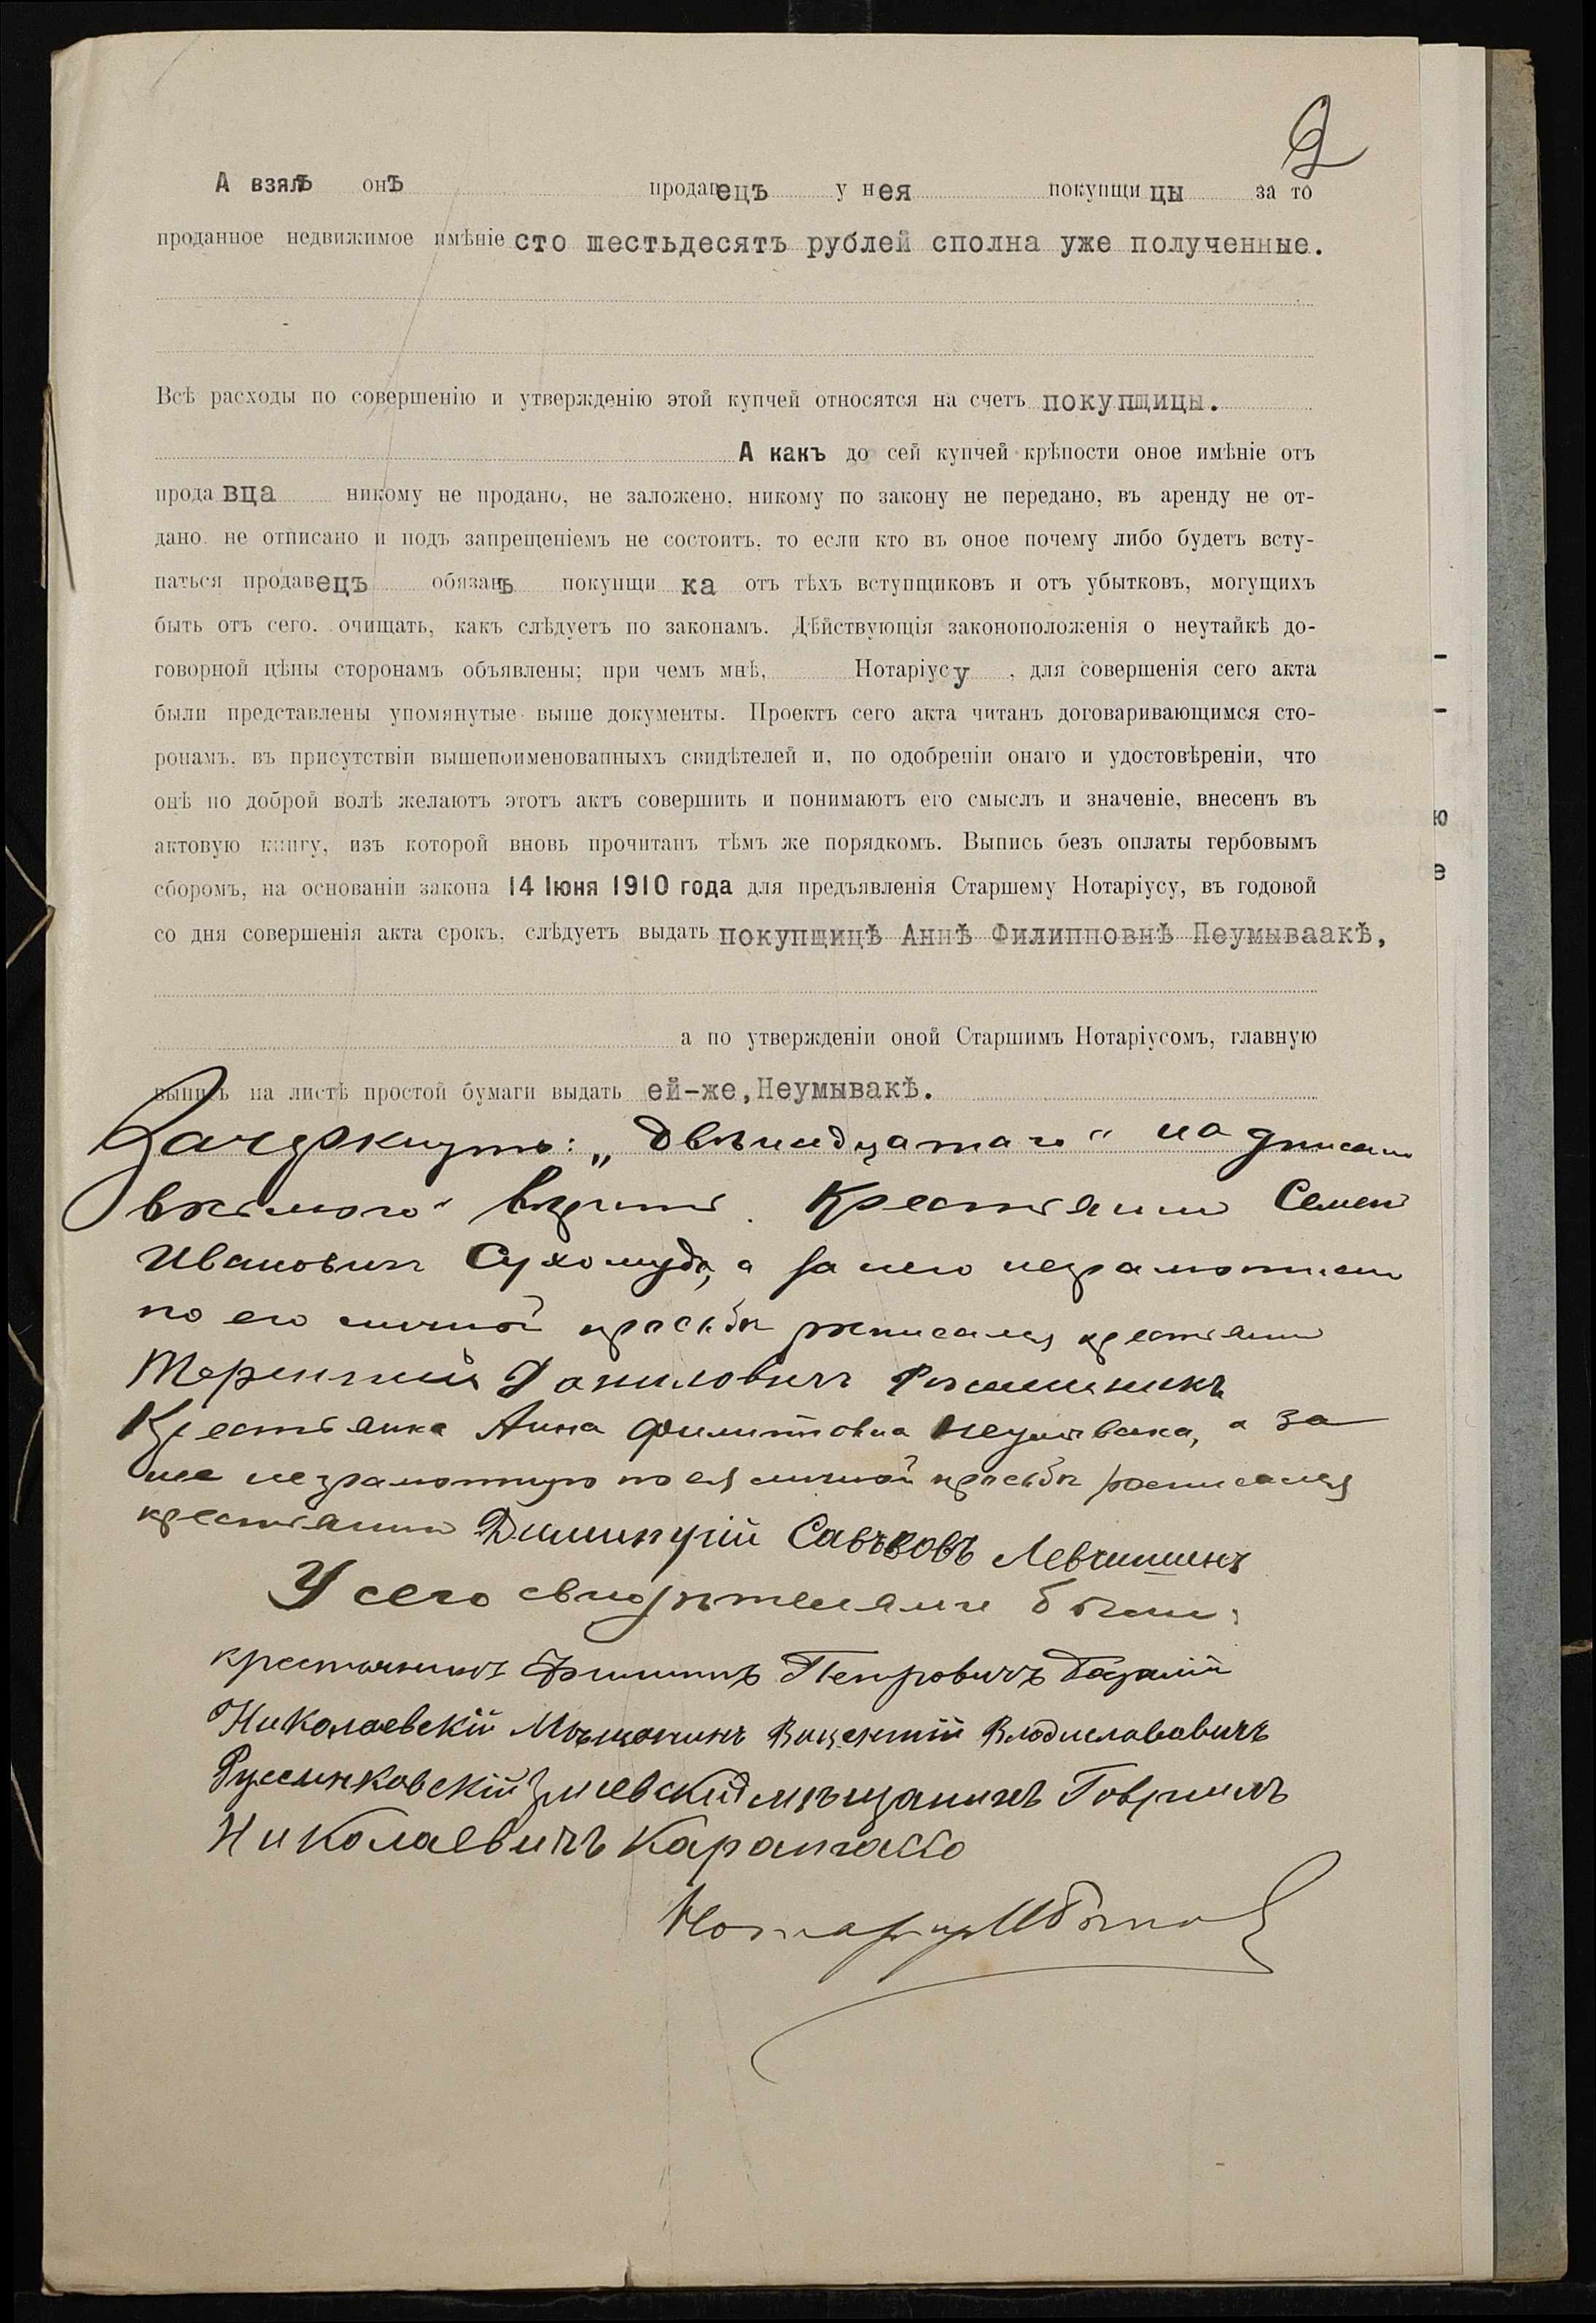 2
А взялъ онъ продавецъ у нея покупщицы за то
проданное недвижимое имѣніе сто шестьдесятъ рублей сполна уже полученные.
Всѣ расходы по совершенію и утвержденію этой купчей относятся на счетъ покупщицы.
А какъ до сей купчей крѣпости оное имѣніе отъ
продавца никому не продано, не заложено, никому по закону не передано, въ аренду не от-
дано, не отписано и подъ запрещеніемъ не состоитъ, то если кто въ оное почему либо будетъ всту-
паться продавецъ обязанъ покупщика отъ тѣхъ вступщиковъ и отъ убытковъ, могущихъ
быть отъ сего, очищать, какъ слѣдуетъ по законамъ. Дѣйствующія законоположенія о неутайкѣ до-
говорной цѣны сторонамъ объявлены; при чемъ мнѣ, Нотаріусу, для совершенія сего акта
были представлены упомянутые выше документы. Проектъ сего акта читанъ договаривающимся сто-
ронамъ, въ присутствіи вышепоименованныхъ свидѣтелей и, по одобреніи онаго и удостовѣреніи, что
онѣ по доброй волѣ желаютъ этотъ актъ совершить и понимаютъ его смыслъ и значеніе, внесенъ въ
актовую книгу, изъ которой вновь прочитанъ тѣмъ же порядкомъ. Выпись безъ оплаты гербовымъ
сборомъ, на основаніи закона 14 Іюня 1910 года для предъявленія Старшему Нотаріусу, въ годовой
со дня совершенія акта срокъ, слѣдуетъ выдать покупщицѣ Аннѣ Филипповнѣ Неумываакѣ,
а по утвержденіи оной Старшимъ Нотаріусомъ, главную
выпись на листѣ простой бумаги выдать ей-же, Неумывакѣ.
Зачеркнуто: „двѣнадцатаго“ надписано
Крестьянинъ Семенъ
Ивановичъ Сухомудъ, а за него неграмотнаго
по его личной просьбѣ росписался крестьянинъ
Терентій Даниловичъ
Крестьянка Анна Филипповна Неумывака, а за
нее неграмотную по ея личной просьбѣ росписался
крестьянинъ Димитрій Савъвовъ Левчишинъ
У сего свидѣтелями были:
крестьянинъ Филиппъ Петровичъ
Николаевскій Мѣщанинъ Викентій Владиславовичъ
Русинковскій Змиевскій мѣщанинъ Гавриилъ
Николаевичъ
Нотаріусъ